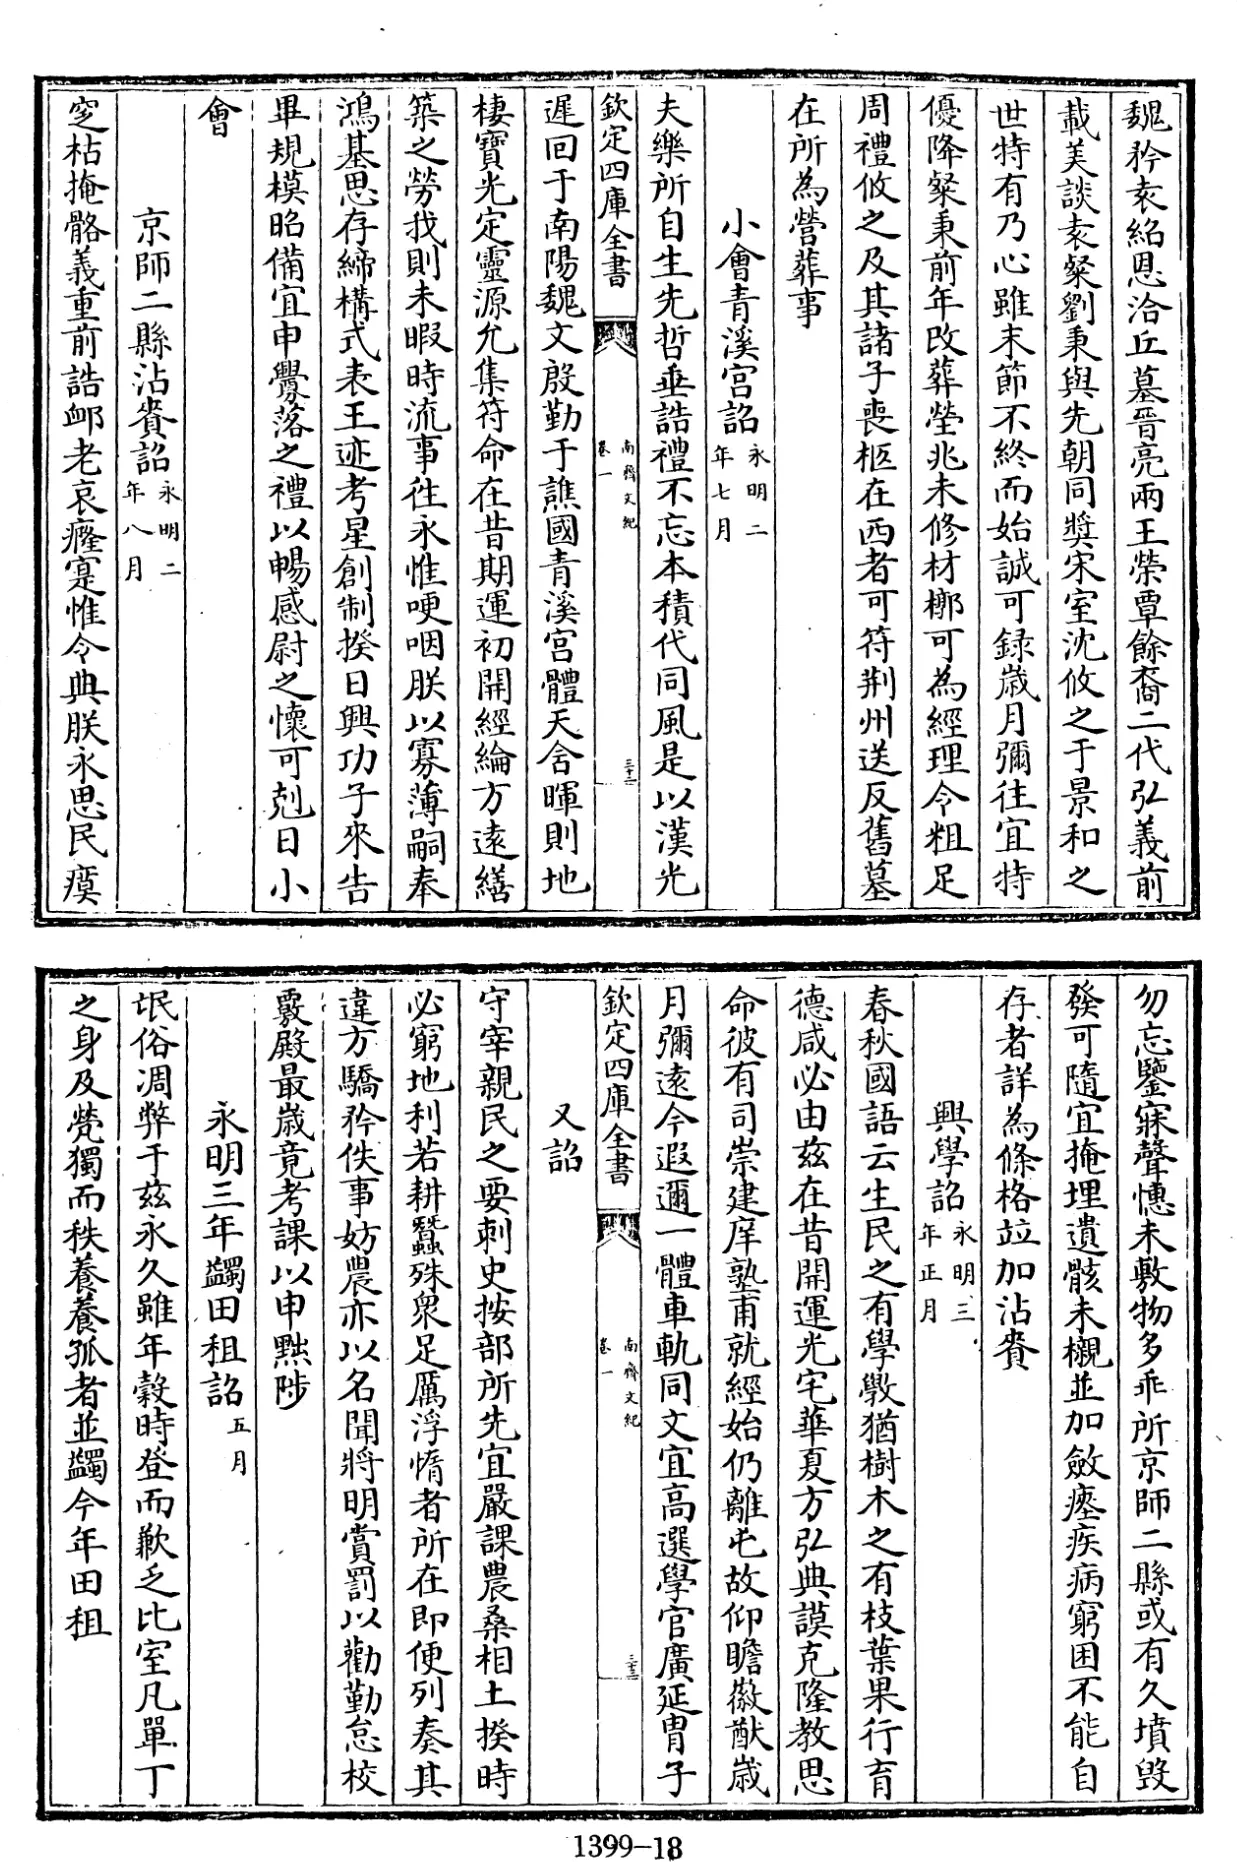 魏矜袁紹恩洽丘墓晉亮兩王榮覃餘裔二代弘義前
載美談袁粲劉秉與先朝同奬宋室沈攸之于景和之
世特有乃心雖末節不終而始誠可録歳月彌往宜特
優降粲秉前年改葬塋兆未修材槨可為經理令粗足
周禮攸之及其諸子喪柩在西者可符荆州送反舊墓
在所為營葬事
小會青溪宫詔永明二年七月
夫樂所自生先哲垂誥禮不忘本積代同風是以漢光
欽定四庫全書
南齊文紀
卷一
三十二
遲回于南陽魏文殷勤于譙國青溪宫體天含暉則地
棲寶光定靈源允集符命在昔期運初開經綸方遠繕
築之勞我則未暇時流事往永惟哽咽朕以寡薄嗣奉
鴻基思存締構式表王迹考星創制揆日興功子來告
畢規模昭備宜申釁落之禮以暢感尉之懷可剋日小
會
京師二縣沾賚詔永明二年八月
窆枯掩骼義重前誥䘏老哀癃寔惟令典朕永思民瘼
勿忘鑒寐聲憓未敷物多乖所京師二縣或有久墳毁
發可隨宜掩埋遺骸未櫬並加斂瘞疾病窮困不能自
存者詳為條格竝加沾賚
興學詔永明三年正月
春秋國語云生民之有學斆猶樹木之有枝葉果行育
德咸必由兹在昔開運光宅華夏方弘典謨克隆教思
命彼有司崇建庠塾甫就經始仍離屯故仰瞻徽猷歳
月彌遠今遐邇一體車軌同文宜高選學官廣延胄子
欽定四庫全書
南齊文紀
卷一
三十三
又詔
守宰親民之要刺史按部所先宜嚴課農桑相土揆時
必窮地利若耕蠶殊衆足厲浮惰者所在即便列奏其
違方驕矜佚事妨農亦以名聞將明賞罰以勸勤怠校
覈殿最歳竟考課以申黜陟
永明三年蠲田租詔五月
氓俗凋弊于兹永久雖年穀時登而歉乏比室凡單丁
之身及煢獨而秩養養孤者並蠲今年田租
1399-18